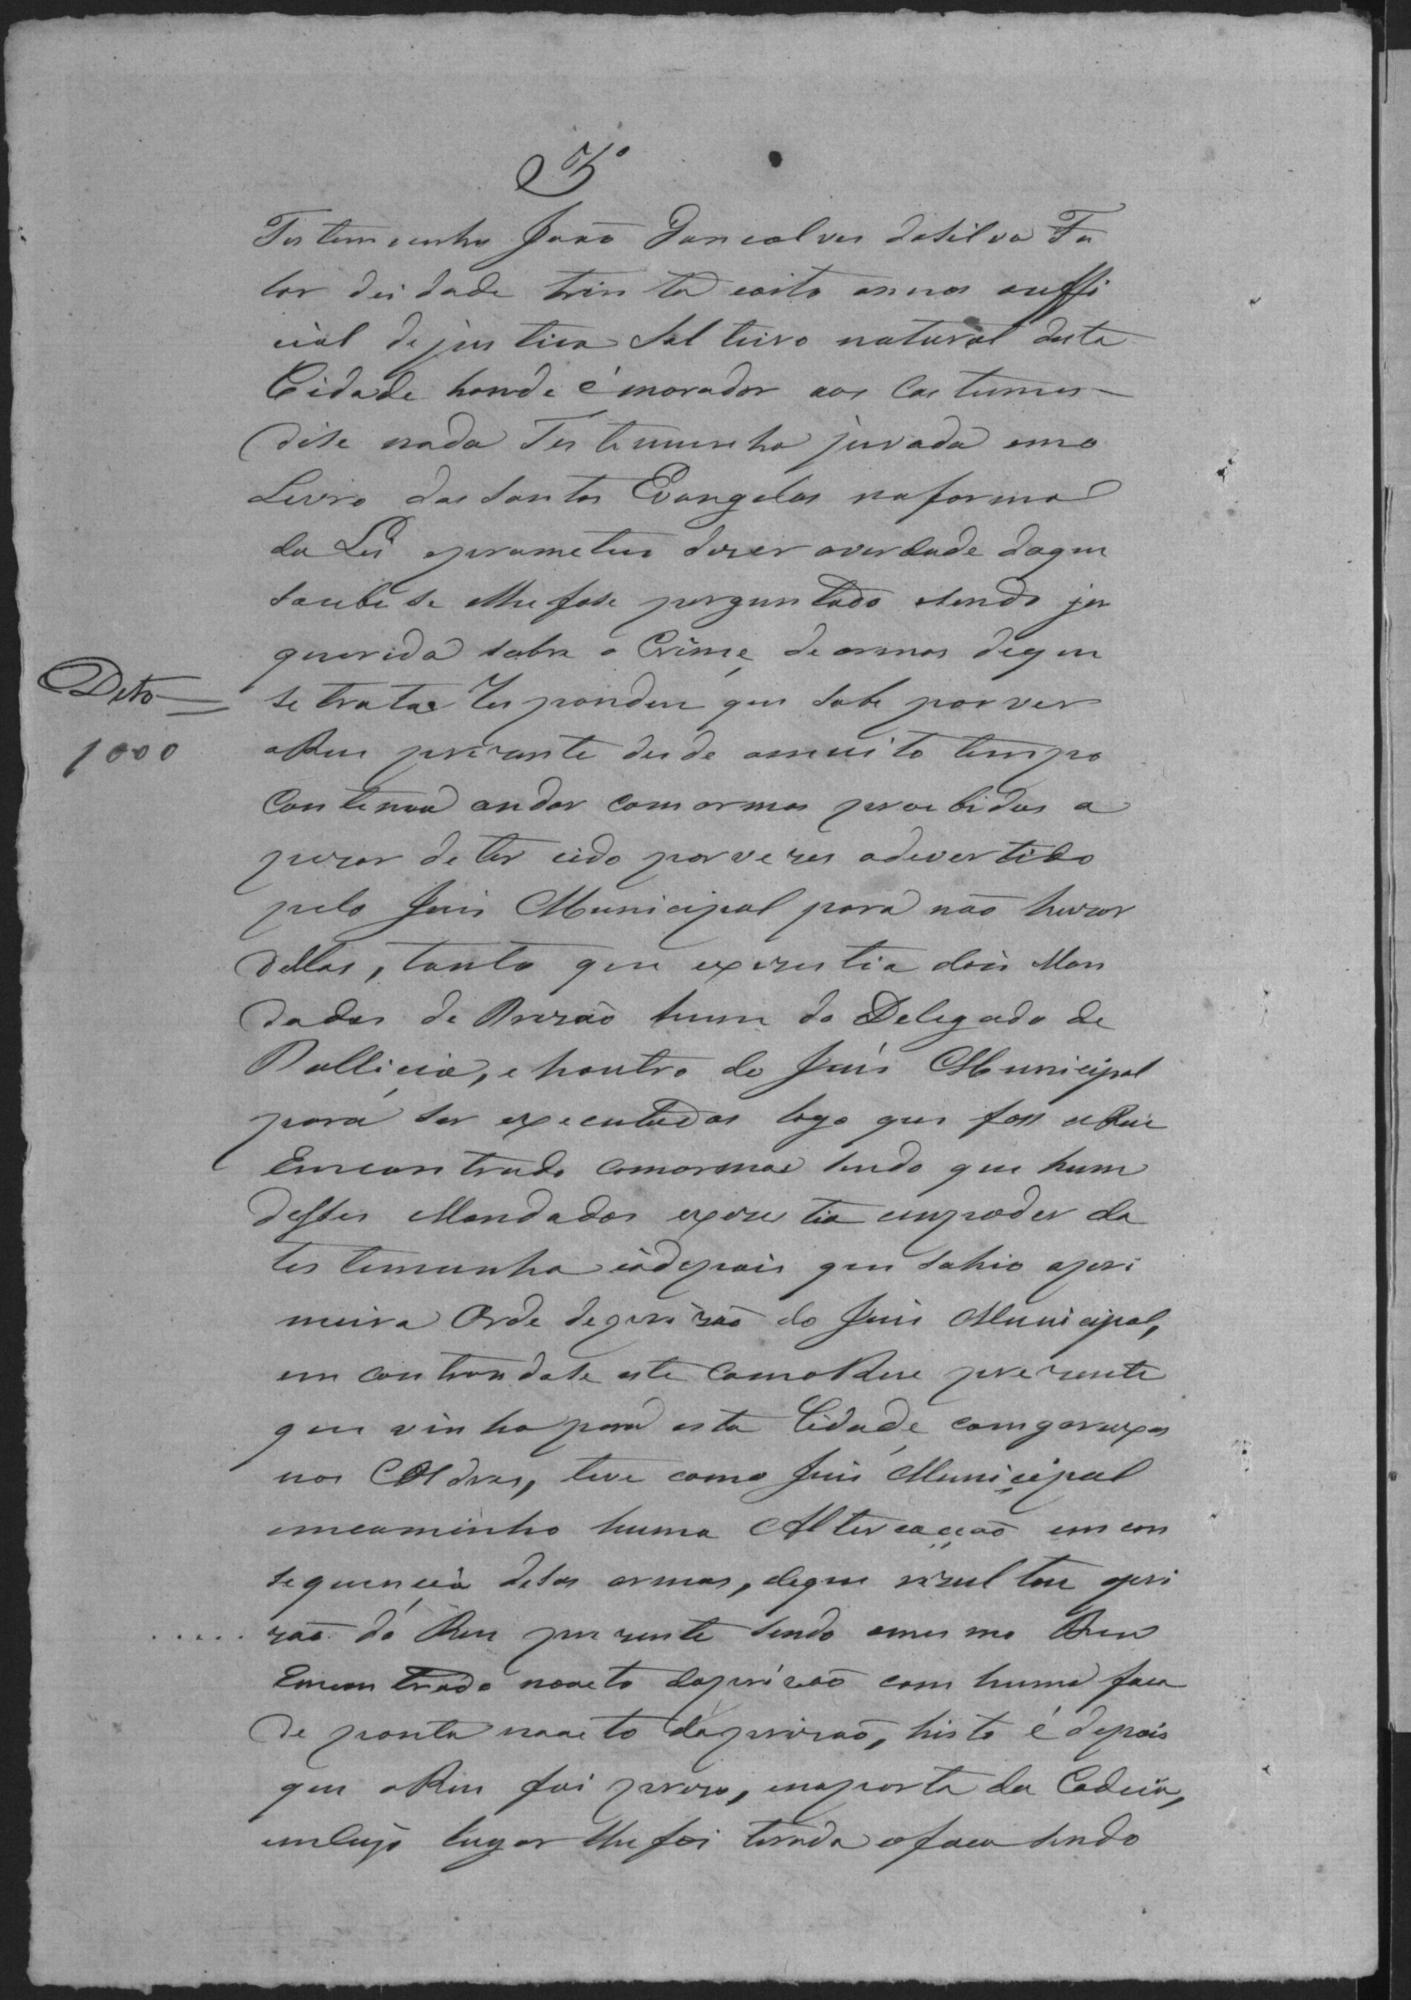 5º
Testemunha João Goncalves dasilva Fa
lor deidade trinta eoito annos auffi
cial dejustica Solteiro natural desta
Cidade honde é morador aos Costumes
dise nada Testemunha jurada em o
Livro dos Santos Evangelos naforma
da Lei eprometeu dizer averdade doque
soubese elhe fose perguntado esendo in
querida sobre o Crime de armas deque
se trata Respondeu que sabe por ver
Dito
1000
oReu prezante desde amuito tempo
Contenua andar comarmas proebidas a
pezar deter cido por vezes adevertido
pelo Juis Municipal para não huzar
dellas, tanto que exzestia dois Man
dados de Prizão hum do Delegado de
Pollicia, e houtro do Juis Municipal
para ser executados logo que fose oReu
Emcontrado comarmas sendo que hum
desses Mandados exzestia empoder da
testemunha eidepois que sahio apri
meira Orde deprizão do Juis Municipal,
em contrandose este como Reu prezente
que vinha para esta Cidade comgaruxas
nos Coldres, teve como Juis Municipal
emcaminho huma Altercacção em con
sequencia desas armas, deque rezultou apri
zão do Reu prezente sendo omesmo Reu
Emcontrado noacto daprizão com huma faca
de ponta noacto daprizão, histo é depois
que oReu foi prezo, enaporta da Cadeia,
emCujo lugar lhefoi terada afaca sendo